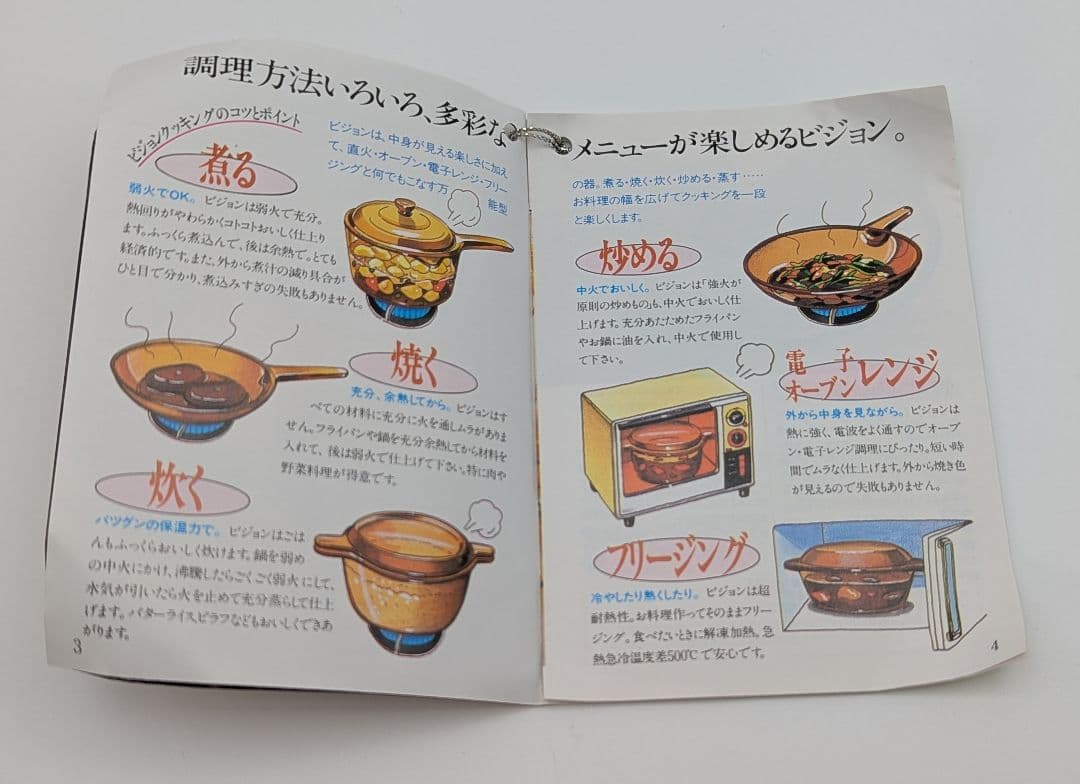 調理方法いろいろ、多彩な
ビジョンクッキングのコツとポイント
ビジョンは、中身が見える楽しさに加え
て、直火・オーブン・電子レンジ・フリー
ジングと何でもこなす万
能型
煮る
弱火でOK。ビジョンは弱火で充分。
熱回りがやわらかくコトコトおいしく仕上り
ます。ふっくら煮込んで、後は余熱で。とても
経済的です。また、外から煮汁の減り具合が
ひと目で分かり、煮込みすぎの失敗もありません。
焼く
充分、余熱してから。ビジョンはす
べての材料に充分に火を通しムラがありま
せん。フライパンや鍋を充分余熱してから材料を
入れて、後は弱火で仕上げて下さい。特に肉や
野菜料理が得意です。
炊く
バツグンの保温力で。ビジョンはごは
んもふっくらおいしく炊けます。鍋を弱め
の中火にかけ、沸騰したらごくごく弱火にして、
水気が引いたら火を止めて充分蒸らして仕上
げます。バターライスピラフなどもおいしくできあ
がります。
3
メニューが楽しめるビジョン。
の器。煮る・焼く・炊く・炒める・蒸す……
お料理の幅を広げてクッキングを一段
と楽しくします。
炒める
中火でおいしく。ビジョンは「強火が
原則の炒めもの」も、中火でおいしく仕
上げます。充分あたためたフライパン
やお鍋に油を入れ、中火で使用し
て下さい。
電子
オーブンレンジ
外から中身を見ながら。ビジョンは
熱に強く、電波をよく通すのでオーブ
ン・電子レンジ調理にぴったり。短い時
間でムラなく仕上げます。外から焼き色
が見えるので失敗もありません。
フリージング
冷やしたり熱くしたり。ビジョンは超
耐熱性。お料理作ってそのままフリー
ジング。食べたいときに解凍加熱。急
熱急冷温度差500℃で安心です。
4